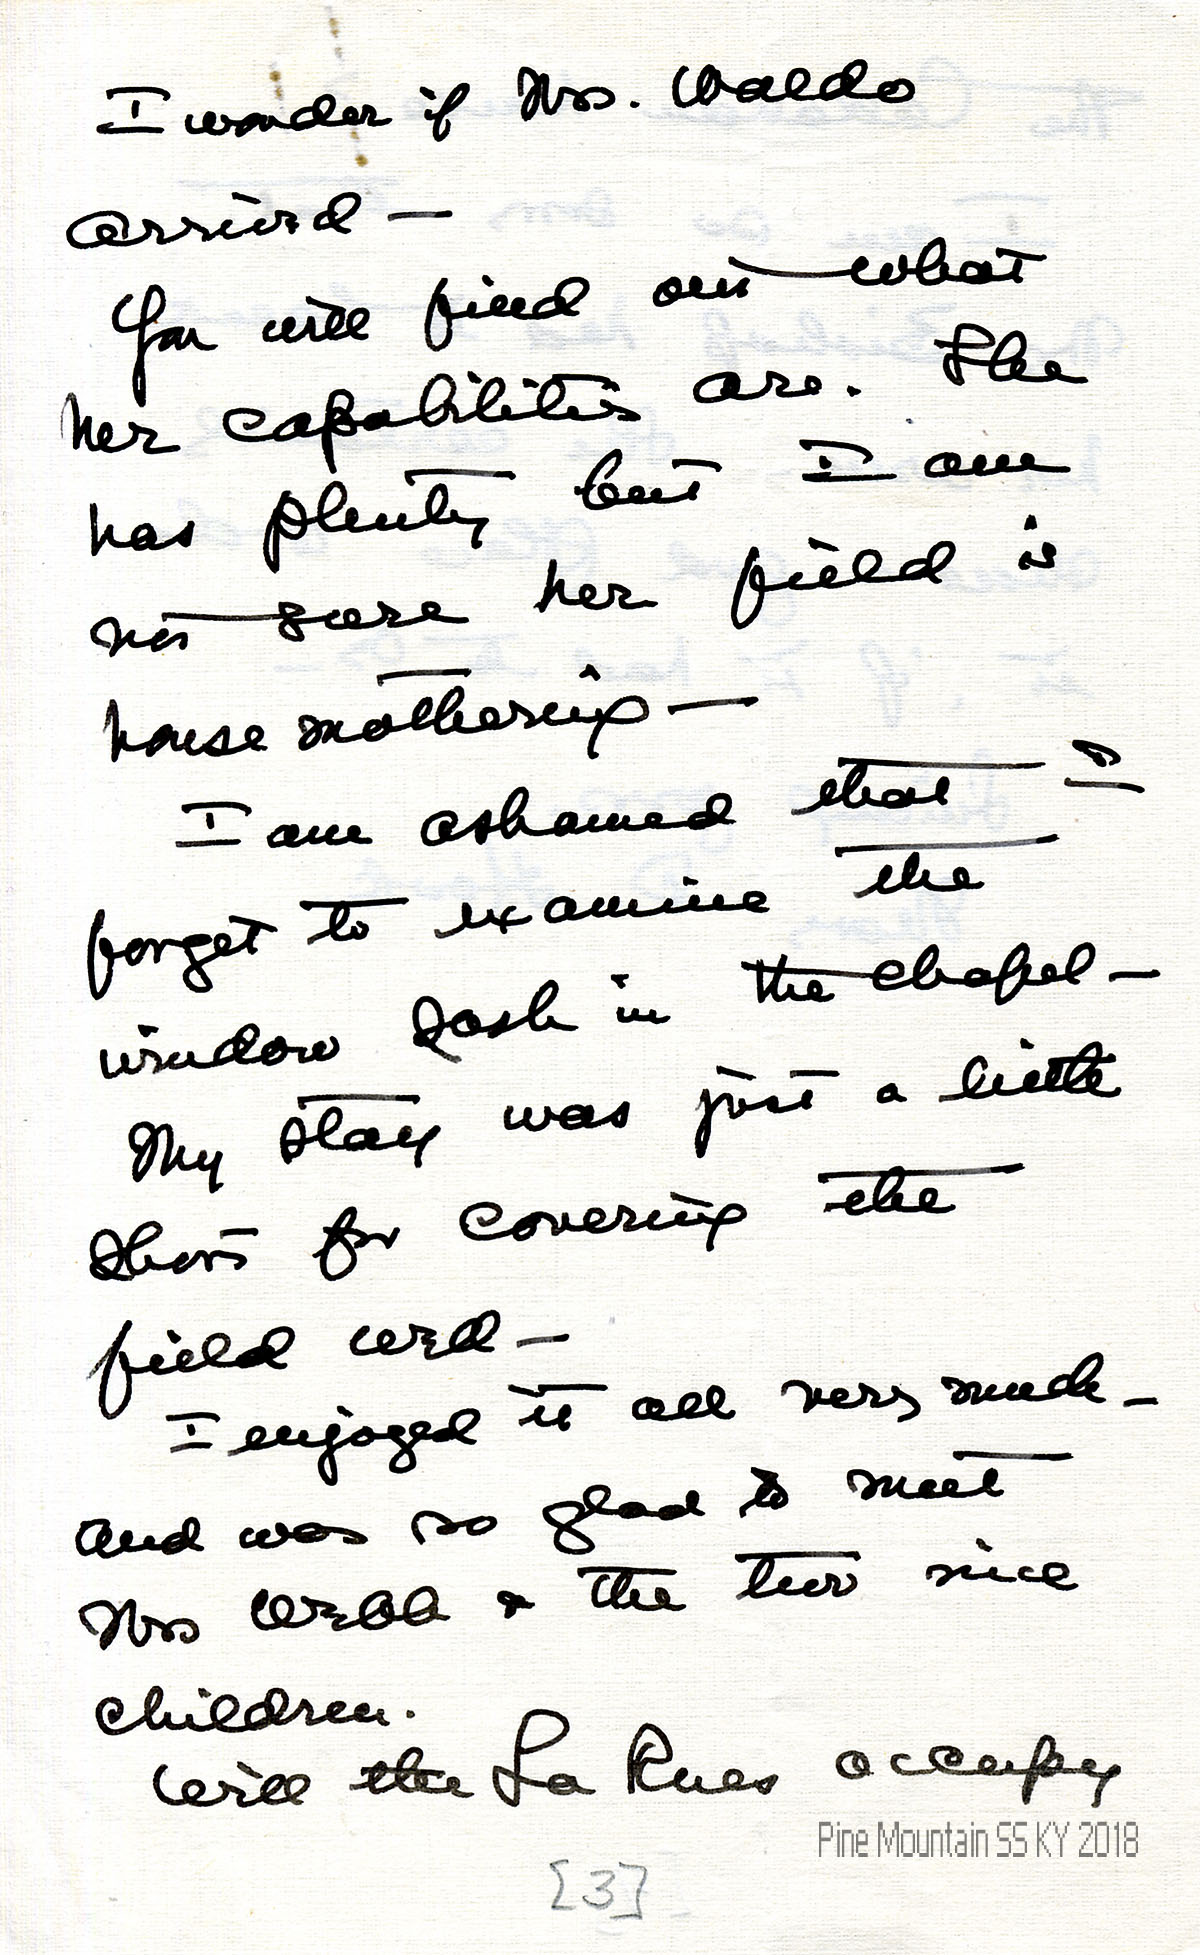 I wonder if Mrs. Waldo
arrived —
You will find out what
her capabilities are. She
has plenty but I am
not sure her field is
house mothering —
I am ashamed that I
forget to examine the
window sash in the chapel —
My stay was just a little
short for covering the
field well —
I enjoyed it all very much —
and was so glad to meet
Mrs Webb & the two nice
children.
Will the La Rues occupy
Pine Mountain SS KY 2018
[3]